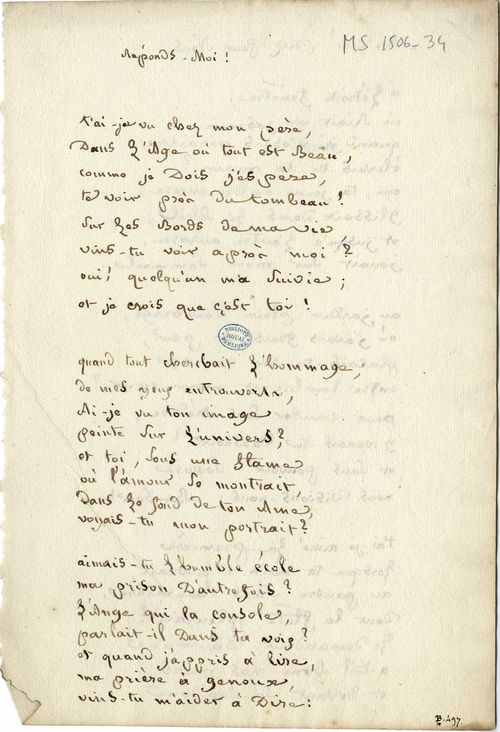 MS 1506-34
Réponds-Moi !
t'ai-je vu chez mon père,
Dans l'Age où tout est Beau,
comme je Dois j'espère,
te voir près du tombeau !
Sur les Bords de ma vie
vins-tu voir après moi ?
oui ! quelqu'un m'a suivie ;
et je crois que c'est toi !
BIBLIOTH
DOUAI
quand tout cherchait l'hommage,
de mes yeux entrouverts,
Ai-je vu ton image
peinte sur l'univers ?
et toi, sous une flame
où l'amour se montrait
Dans le fond de ton Ame,
voyais-tu mon portrait ?
aimais-tu l'humble école
ma prison D'autrefois ?
l'Ange qui la console,
parlait-il Dans ta voix ?
et quand j'appris à lire,
ma prière à genoux,
vins-tu m'aider à Dire :
B. 497.